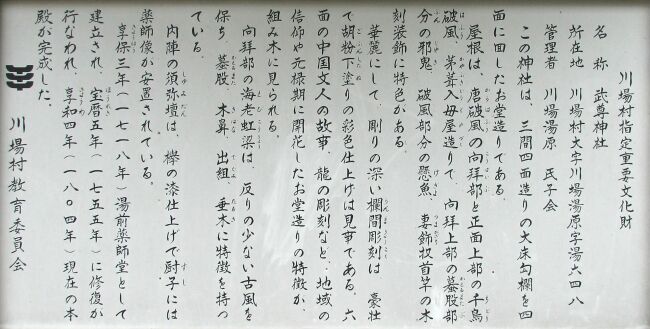 川場村指定重要文化財
名 称 武尊神社
所在地 川場村大字川場湯原字湯六四八
管理者 川場湯原 氏子会
この神社は、三間四面造りの大床勾欄を四
面に回したお堂造りである。
屋根は、唐破風の向拝部と正面上部の千鳥
破風、茅葺入母屋造りで、向拝上部の蟇股部
分の邪鬼、破風部分の懸魚、妻飾扠首竿の木
刻装飾に特色がある。
華麗にして、剛りの深い欄間彫刻は、豪壮
で胡粉下塗りの彩色仕上げは見事である。六
面の中国文人の故事、龍の彫刻など、地域の
信仰や元禄期に開花したお堂造りの特徴が、
組み木に見られる。
向拝部の海老虹梁は、反りの少ない古風を
保ち、蟇股、木鼻、出組、垂木に特徴を持っ
ている。
内陣の須弥壇は、欅の漆仕上げで厨子には
薬師像が安置されている。
享保三年(一七一八年)湯前薬師堂として
建立され、宝暦五年(一七五五年)に修復が
行なわれ、享和四年(一八〇四年)現在の本
殿が完成した。
川場村教育委員会